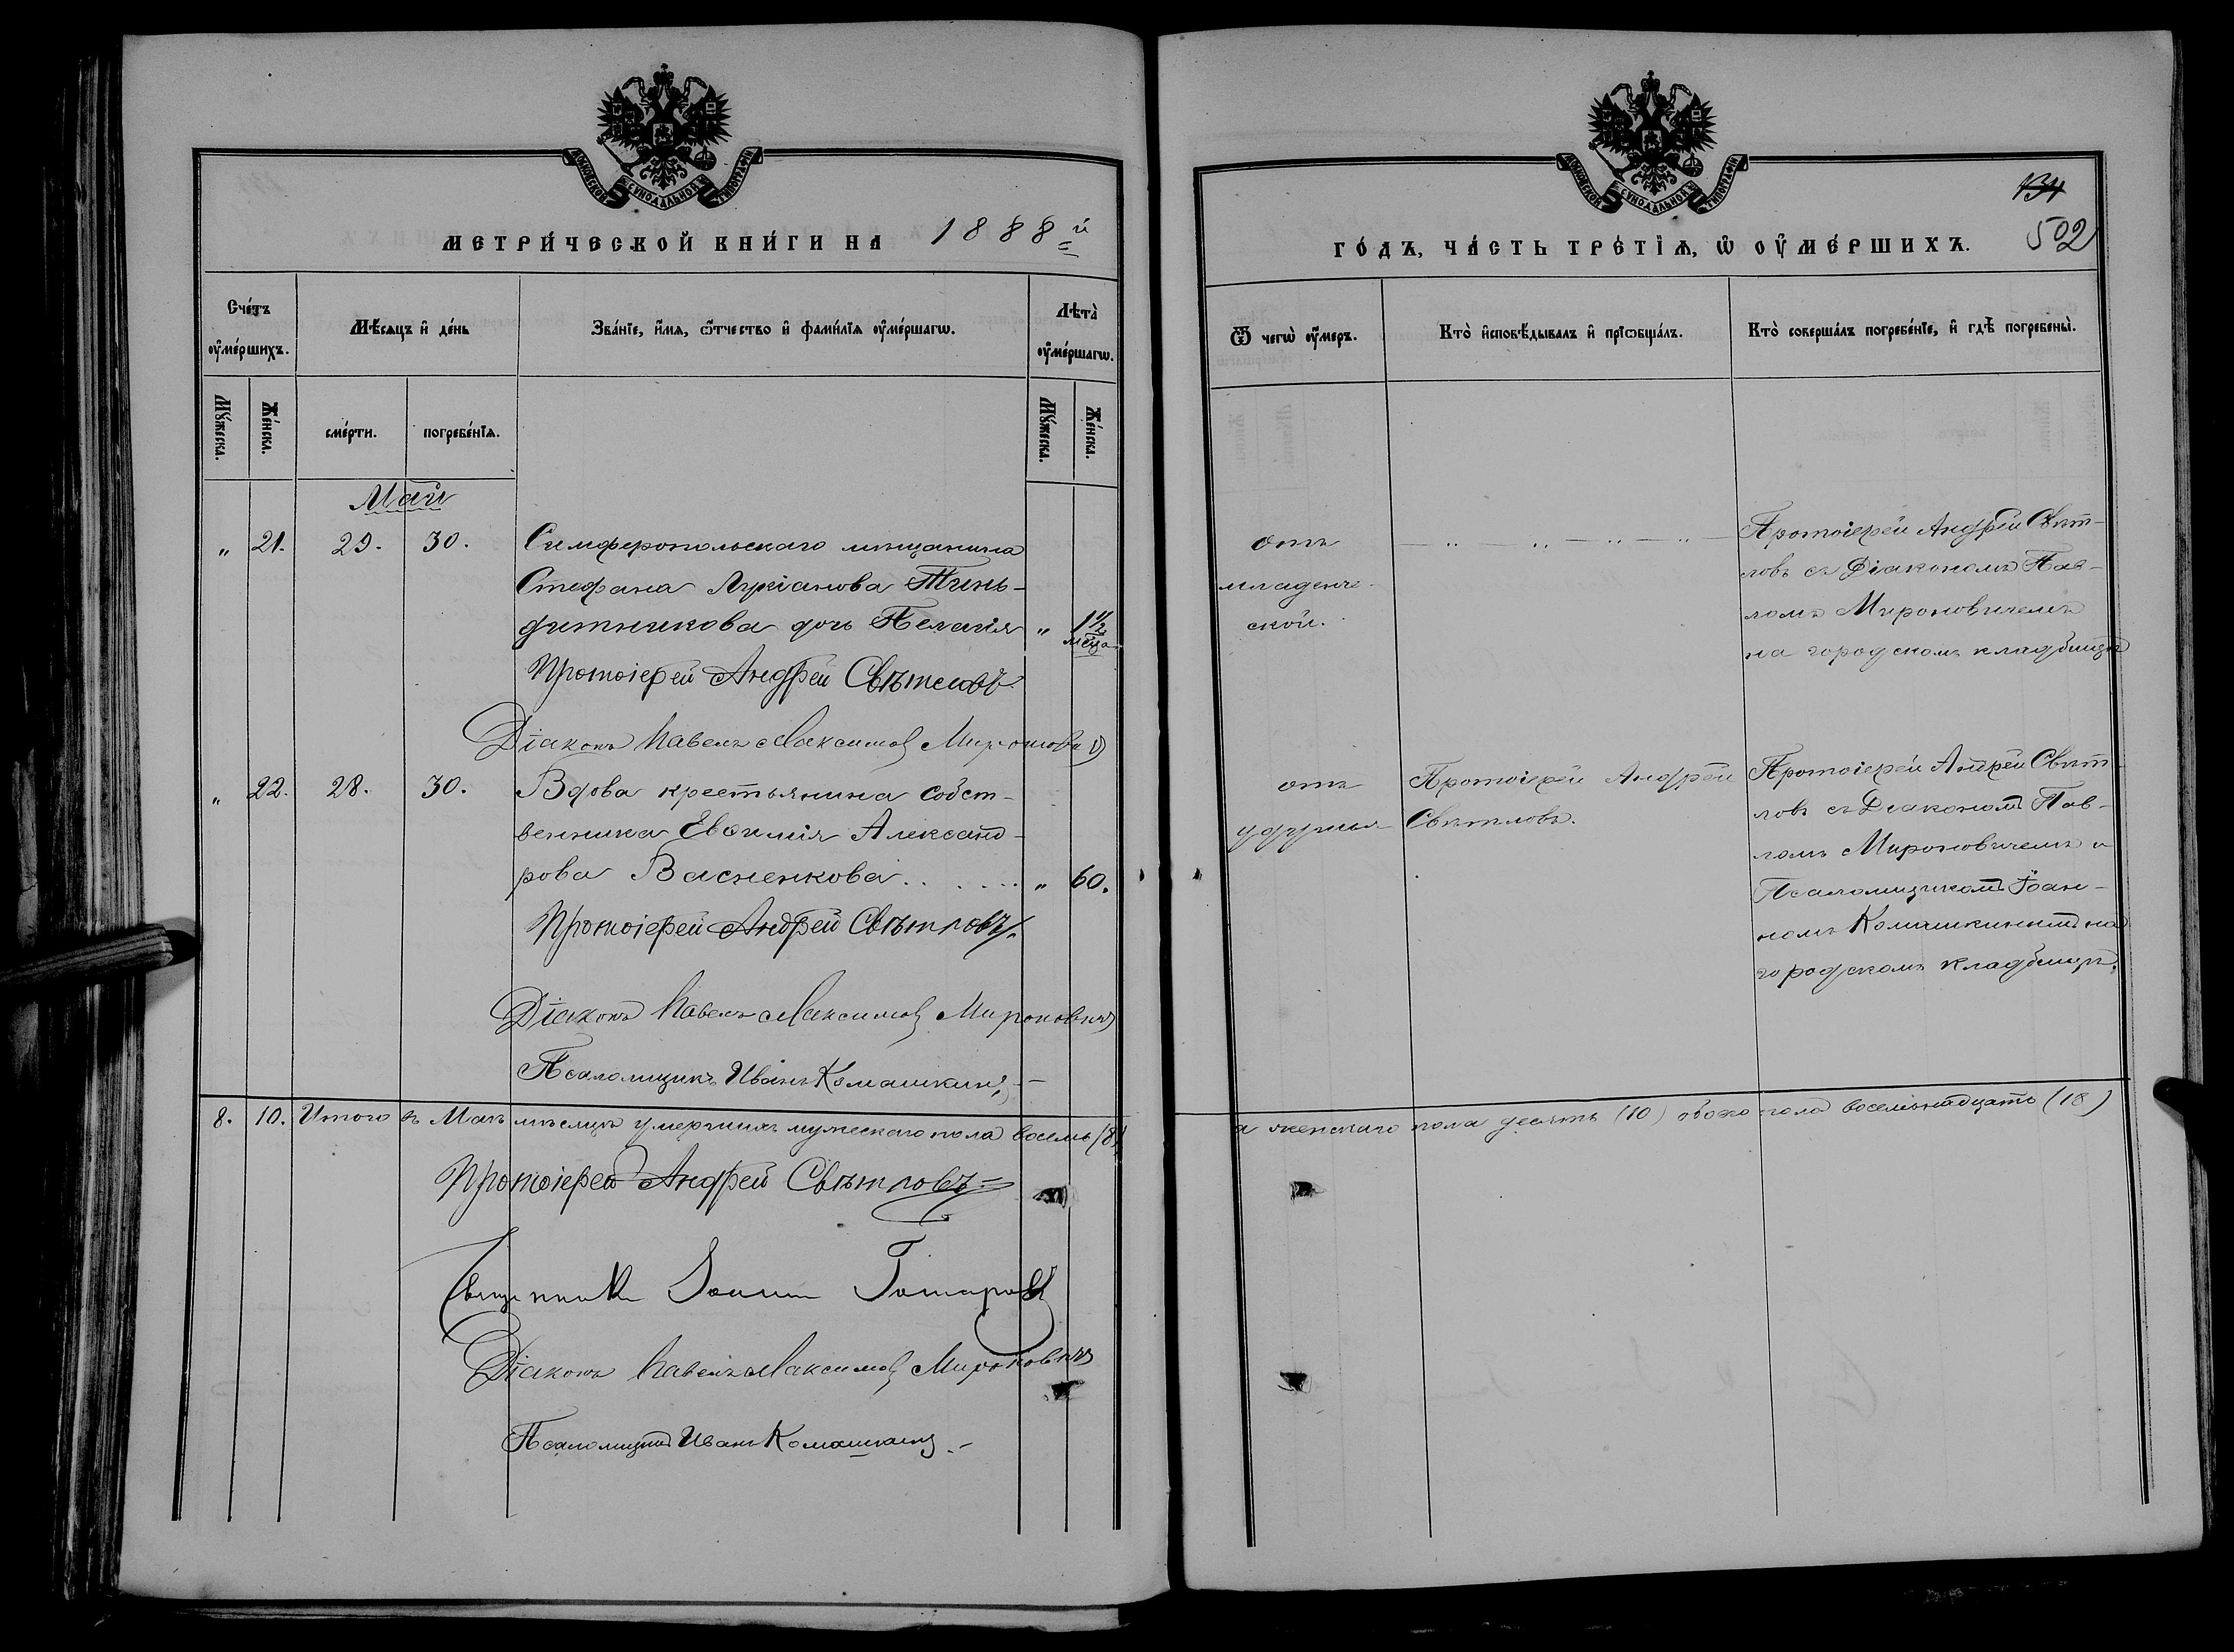 МОСКОВСКОЙ СѴНОДАЛЬНОЙ ТИПОГРАФІИ
МЕТРИ́ЧЕСКОЙ КНИ́ГИ НА 1888й
Сче́тъ оу҆ме́ршихъ.
Мѣ́сяцъ и҆ де́нь
Зва́нїе, и҆́мя, ѻ҆́тчество и҆ фами́лїя оу҆ме́ршагѡ.
Лѣта̀ оу҆ме́ршагѡ.
Мꙋ́жеска.
Же́нска.
сме́рти.
погребе́нїѧ.
Мꙋ́жеска.
Же́нска.
Май
„ 21. 29. 30. Симферопольскаго мѣщанина
Стефана Лукіанова
дочь Пелагія „ 1 1/2
мѣца
Протоіерей Андрей Свѣтловъ
Діаконъ Павелъ Максимов Миронович
„ 22. 28. 30. Вдова крестьянина собст-
венника Евѳимія Александ-
рова Васненкова . . . . . . „ 60.
Протоіерей Андрей Свѣтловъ
Діаконъ Павелъ Максимов Миронович
Псаломщикъ Иванъ Комашкинъ
8. 10. Итого въ Маѣ мѣсяцѣ умершихъ мужескаго пола восемь (8)
Протоіерей Андрей Свѣтловъ
Священник Іоанн
Діаконъ Павелъ Максимов Миронович
Псаломщикъ Иванъ Комашкинъ
МОСКОВСКОЙ СѴНОДАЛЬНОЙ ТИПОГРАФІИ
134
502
ГО́ДЪ, ЧА́СТЬ ТРЕ́ТЇѦ, Ѡ҆ ОУ҆МЕ́РШИХЪ.
Ѿ чегѡ̀ оу҆́меръ.
Кто̀ и҆сповѣ́дывалъ и҆ прїѡбща́лъ.
Кто̀ соверша́лъ погребе́нїе, и҆ гдѣ̀ погребены̀.
отъ
младенче-
ской.
— „ — „ — „ — „ —
Протоіерей Андрей Свѣт-
ловъ съ Діакономъ Пав-
ломъ Мироновичемъ
на городскомъ кладбищѣ
отъ
удушья
Протоіерей Андрей
Свѣтловъ.
Протоіерей Андрей Свѣт-
ловъ съ Діакономъ Пав-
ломъ Мироновичемъ и
Псаломщикомъ Іоан-
номъ Комашкинымъ на
городскомъ кладбищѣ.
а женскаго пола десять (10) обоего пола восемьнадцать (18)